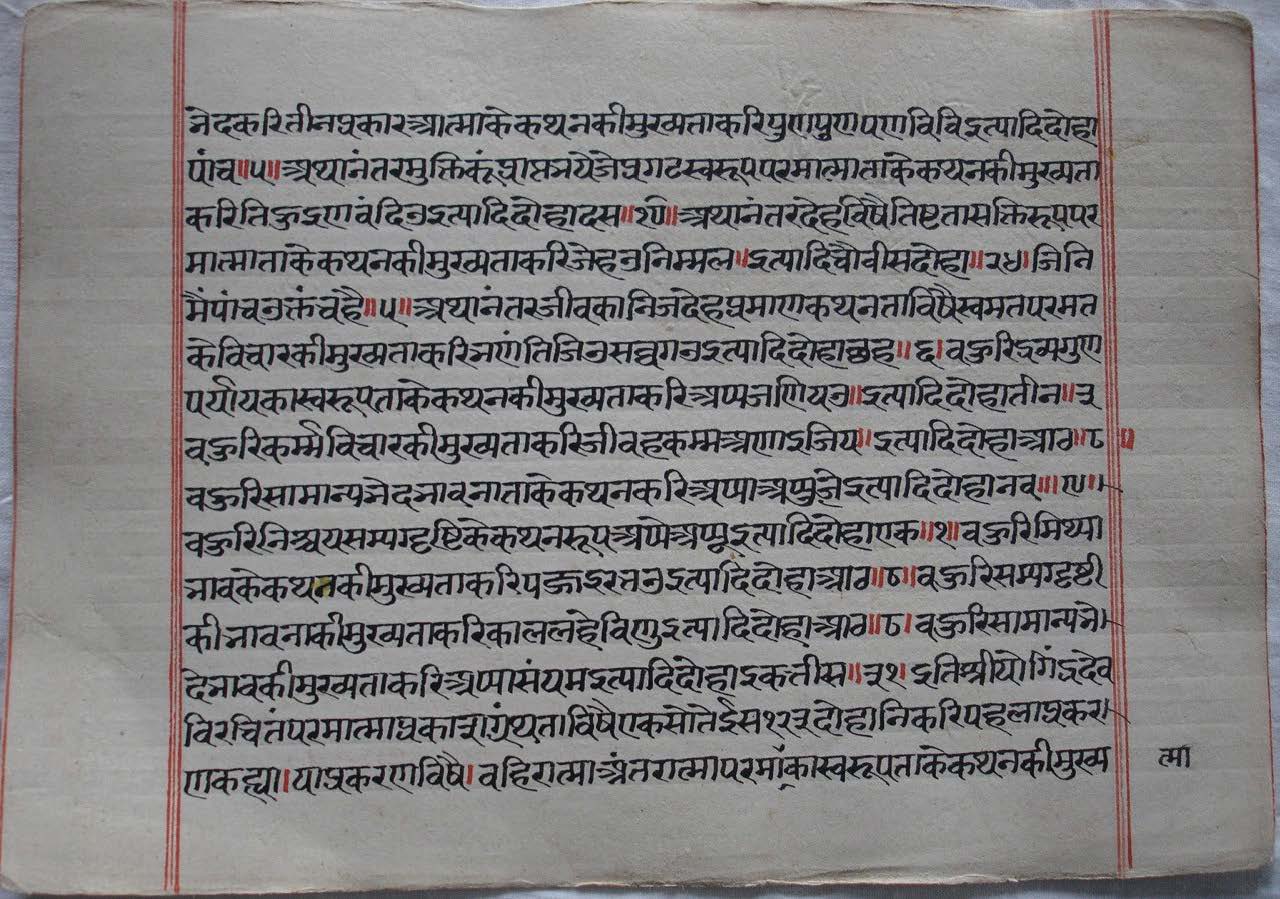 भेदकरितीनप्रकारआत्माकेकथनकीमुख्यताकरिपुणपुणपणविविइत्यादिदोहा
पांच॥५॥अथानंतरमुक्तिकूंप्राप्तभयेजेप्रगटस्वरूपपरमात्माताकेकथनकीमुख्यता
करितिहुइणवंदिउइत्यादिदोहादस॥१०॥अथानंतरदेहविषैतिष्टतासक्तिरूपपर
मात्माताकेकथनकीमुख्यताकरिजेहउनिम्मल॥इत्यादिचौवीसदोहा॥२४।जिनि
मैंपांचउक्तंचहै॥५॥अथानंतरजीवकानिजदेहप्रमाणकथनताविषैस्वमतपरमत
केविचारकीमुख्यताकरिभणंतिजिउसव्वगउइत्यादिदोहाछह॥६।वहुरिद्रव्यगुण
पर्यायकास्वरूपताकेकथनकीमुख्यताकरिअप्पजणियउ॥इत्यादिदोहातीन॥३
वहुरिकर्म्मविचारकीमुख्यताकरिजीवहकम्मअणाइजिय।इत्यादिदोहाआठ॥८॥
वहुरिसामान्यभेदभावनाताकेकथनकरिअप्पाअप्पुजेइत्यादिदोहानव॥९॥
वहुरिनिश्चयसम्यग्दृष्टिकेकथनरूपअप्पेअप्पुइत्यादिदोहाएक॥१।वहुरिमिथ्या
भावकेकथनकीमुख्यताकरिपज्जइरत्तउइत्यादिदोहाआठ॥८॥वहुरिसम्यग्दृष्टी
कीभावनाकीमुख्यताकरिकाललहेविणुइत्यादिदोहाआठ॥८।वहुरिसामान्यभे
देभावकीमुख्यताकरिअप्पासंयमइत्यादिदोहाइकतीस॥३१।इतिश्रीयोगिंद्रदेव
विरचितंपरमात्माप्रकाशग्रंथताविषैएकसोतेईस१२३दोहानिकरिपहलाप्रकर
णकह्या।याप्रकरणविषै।वहिरात्माअंतरात्मापरमाकास्वरूपताकेकथनकीमुख्य
त्मा